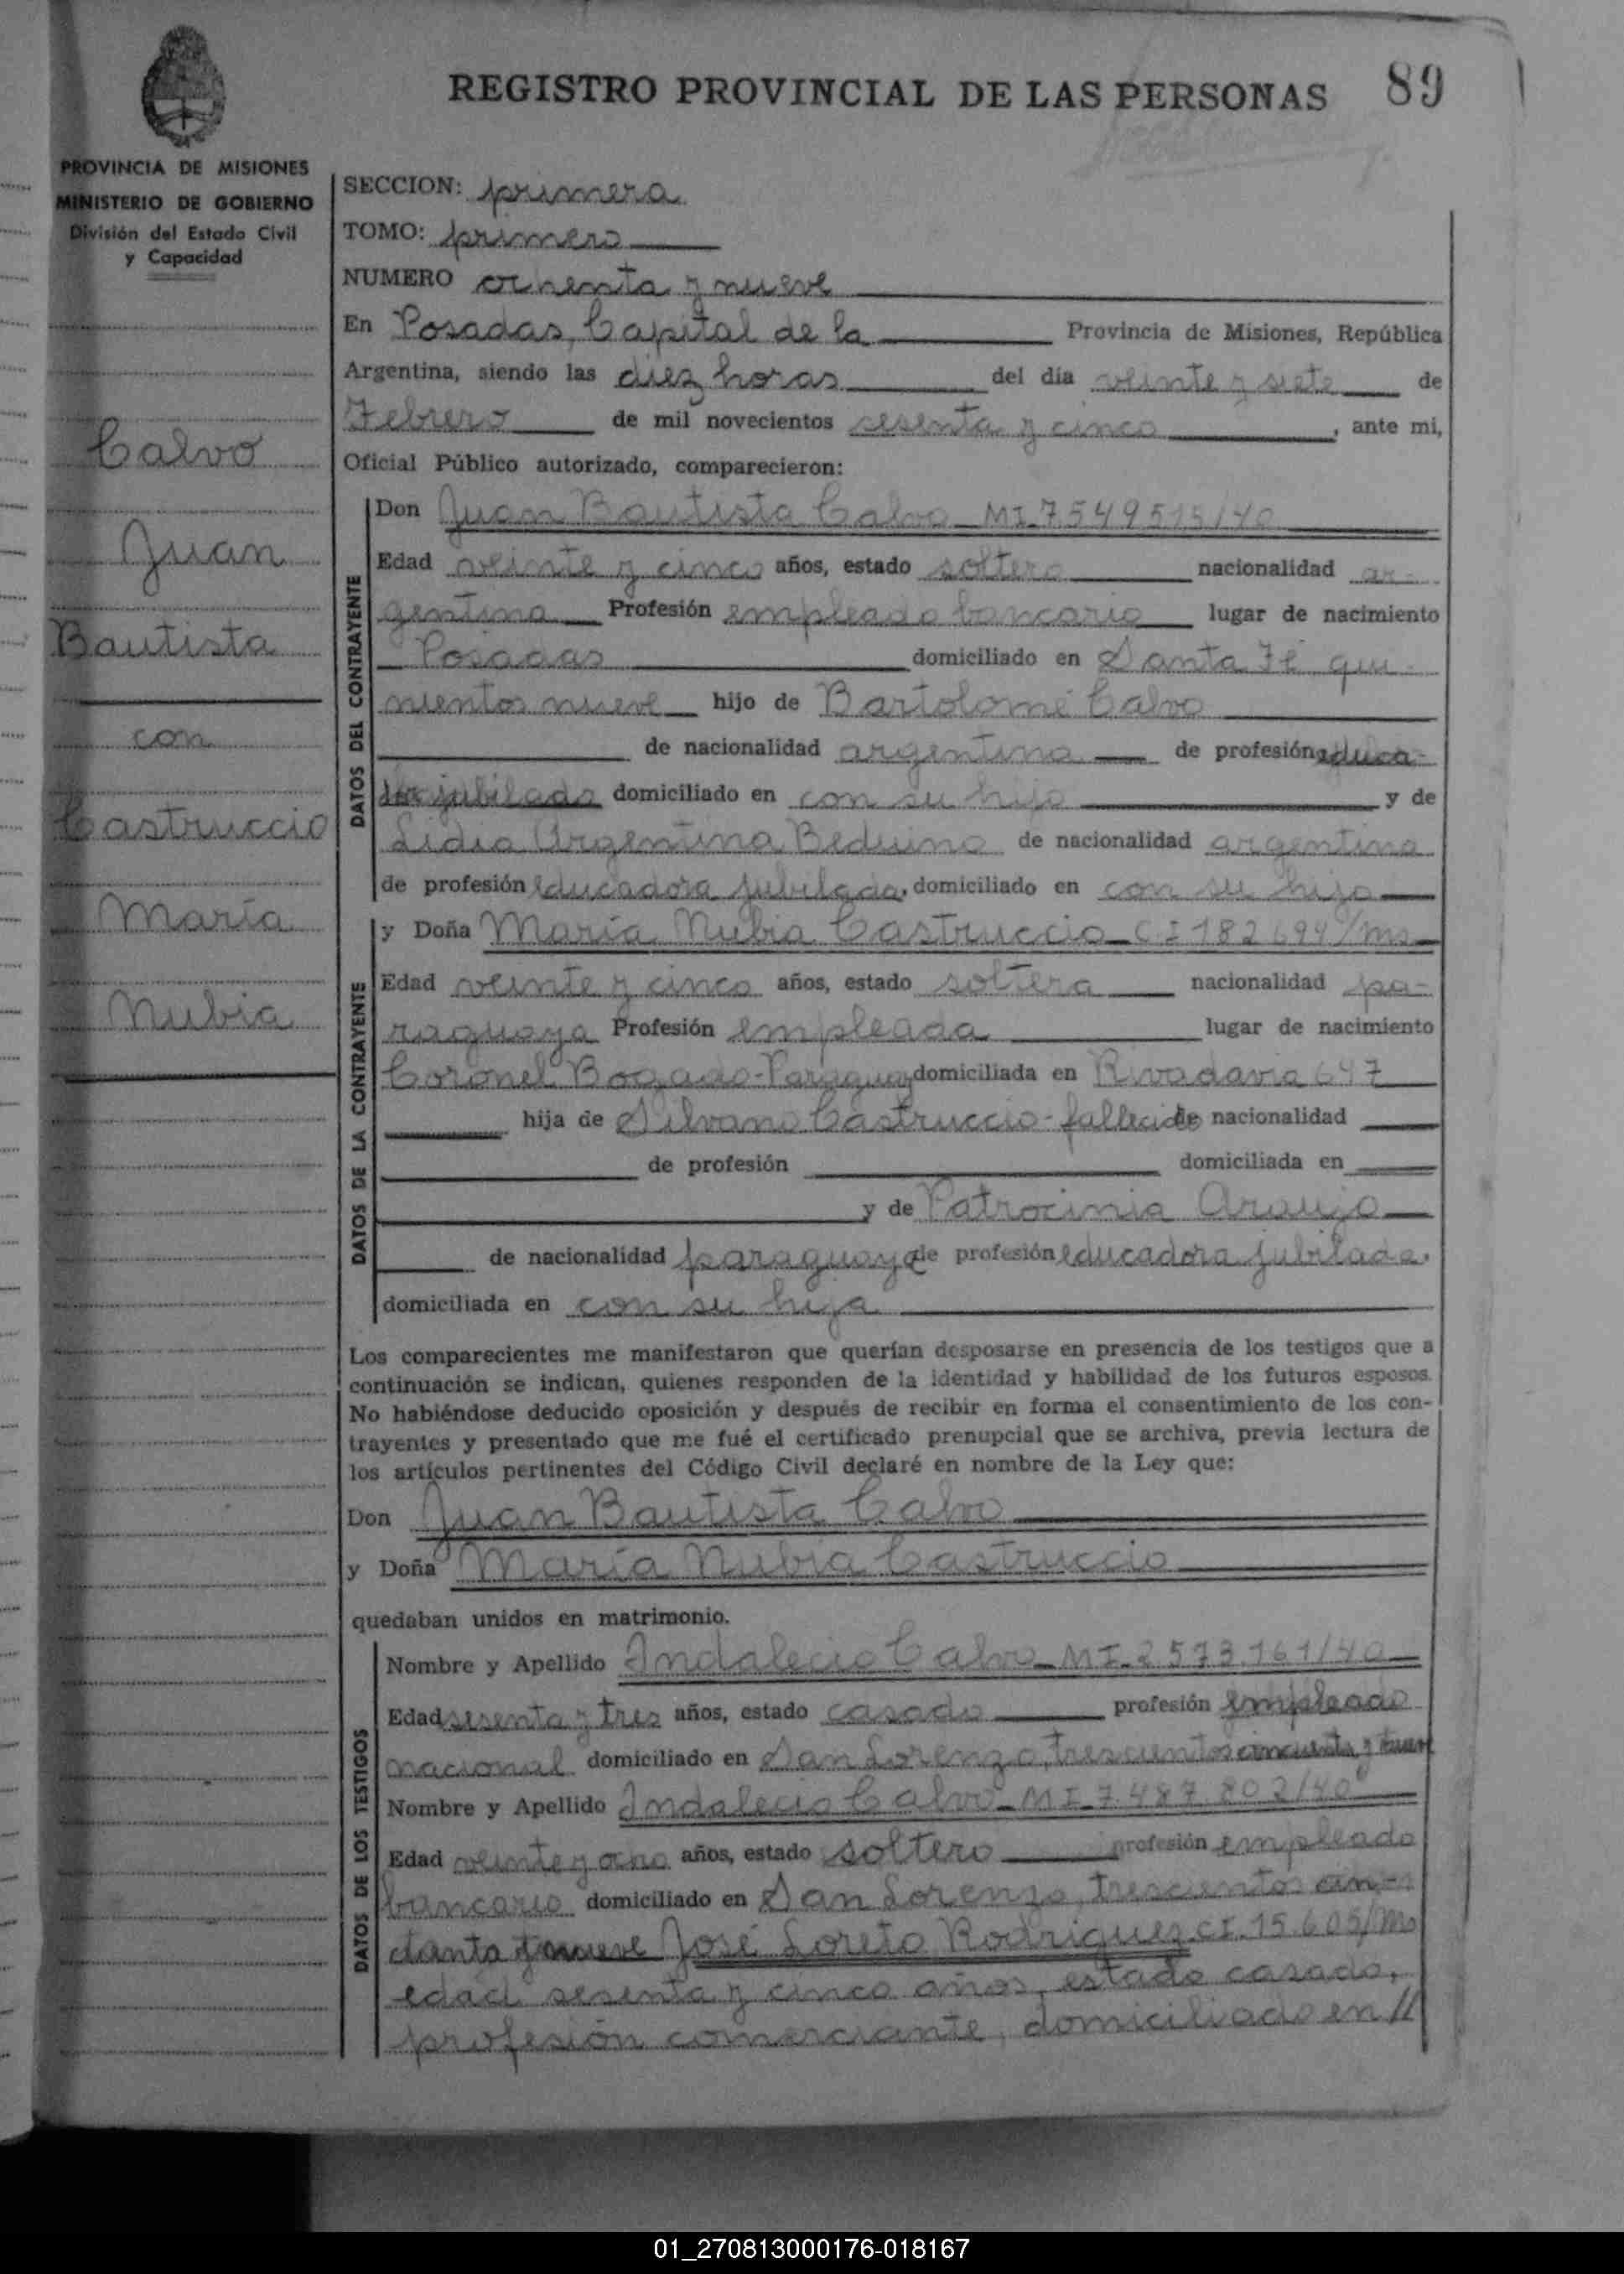 REGISTRO PROVINCIAL DE LAS PERSONAS 89
PROVINCIA DE MISIONES
MINISTERIO DE GOBIERNO
División del Estado Civil
y Capacidad
Calvo
Juan
Bautista
con
Castruccio
María
Nubia
SECCION: primera
TOMO: primero
NUMERO ochenta y nueve
En Posadas, Capital de la Provincia de Misiones, República
Argentina, siendo las diez horas del día veinte y siete de
Febrero de mil novecientos sesenta y cinco, ante mi,
Oficial Público autorizado, comparecieron:
DATOS DEL CONTRAYENTE
Don Juan Bautista Calvo MI 7549515/40
Edad veinte y cinco años, estado soltero nacionalidad ar-
gentina Profesión empleado bancario lugar de nacimiento
Posadas domiciliado en Santa Fé qui-
nientos nueve hijo de Bartolomé Calvo
de nacionalidad argentina de profesión educa-
dor jubilado domiciliado en con su hijo y de
Lidia Argentina Beduino de nacionalidad argentina
de profesión educadora jubilada, domiciliado en con su hijo
DATOS DE LA CONTRAYENTE
y Doña María Nubia Castruccio CI 182694/ms
Edad veinte y cinco años, estado soltera nacionalidad pa-
raguaya Profesión empleada lugar de nacimiento
Coronel Bogado-Paraguay domiciliada en Rivadavia 647
hija de Silvano Castruccio-fallecido de nacionalidad
de profesión domiciliada en
y de Patrocinia Araujo
de nacionalidad paraguaya de profesión educadora jubilada.
domiciliada en con su hija
Los comparecientes me manifestaron que querían desposarse en presencia de los testigos que a
continuación se indican, quienes responden de la identidad y habilidad de los futuros esposos.
No habiéndose deducido oposición y después de recibir en forma el consentimiento de los con-
trayentes y presentado que me fué el certificado prenupcial que se archiva, previa lectura de
los artículos pertinentes del Código Civil declaré en nombre de la Ley que:
Don Juan Bautista Calvo
y Doña María Nubia Castruccio
quedaban unidos en matrimonio.
DATOS DE LOS TESTIGOS
Nombre y Apellido Indalecio Calvo MI 2573.161/40
Edad sesenta y tres años, estado casado profesión empleado
nacional domiciliado en San Lorenzo, trescientos cincuenta y
Nombre y Apellido Indalecio Calvo MI 7.487.802/40
Edad veinte y ocho años, estado soltero profesión empleado
bancario domiciliado en San Lorenzo, trescientos cin-
cuenta y nueve José Loreto Rodriguez CI.15.605/Ms
edad sesenta y cinco años, estado casado,
profesión comerciante, domiciliado en //
01_270813000176-018167